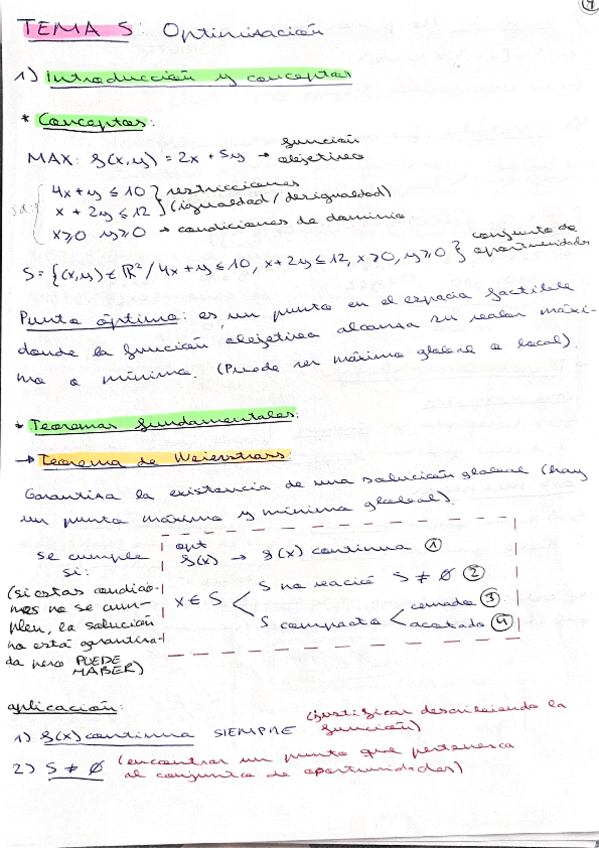 TEMA 5: Optimización
1) Introducción y conceptos
* Conceptos:
MAX: f(x,y) = 2x + 5y → función objetivo
s.a: { 4x + y ≤ 10 } restricciones
x + 2y ≤ 12 } (igualdad/desigualdad)
x≥0 y≥0 → condiciones de dominio
S = {(x,y) ∈ ℝ² / 4x + y ≤ 10, x + 2y ≤ 12, x ≥ 0, y ≥ 0} conjunto de oportunidades
Punto óptimo: es un punto en el espacio factible
donde la función objetivo alcanza su valor máxi-
mo o mínimo. (Puede ser máximo global o local).
* Teoremas fundamentales:
→ Teorema de Weierstrass
Garantiza la existencia de una solución global (hay
un punto máximo y mínimo global).
se cumple si:
(si estas condicio-
nes no se cum-
plen, la solución
no está garantiza-
da pero PUEDE
HABER)
opt
f(x) → f(x) continua ①
x ∈ S < S no vacío S ≠ ∅ ②
S compacto < cerrado ③
acotado ④
aplicación:
1) f(x) continua SIEMPRE (justificar describiendo la función)
2) S ≠ ∅ (encontrar un punto que pertenezca
al conjunto de oportunidades)